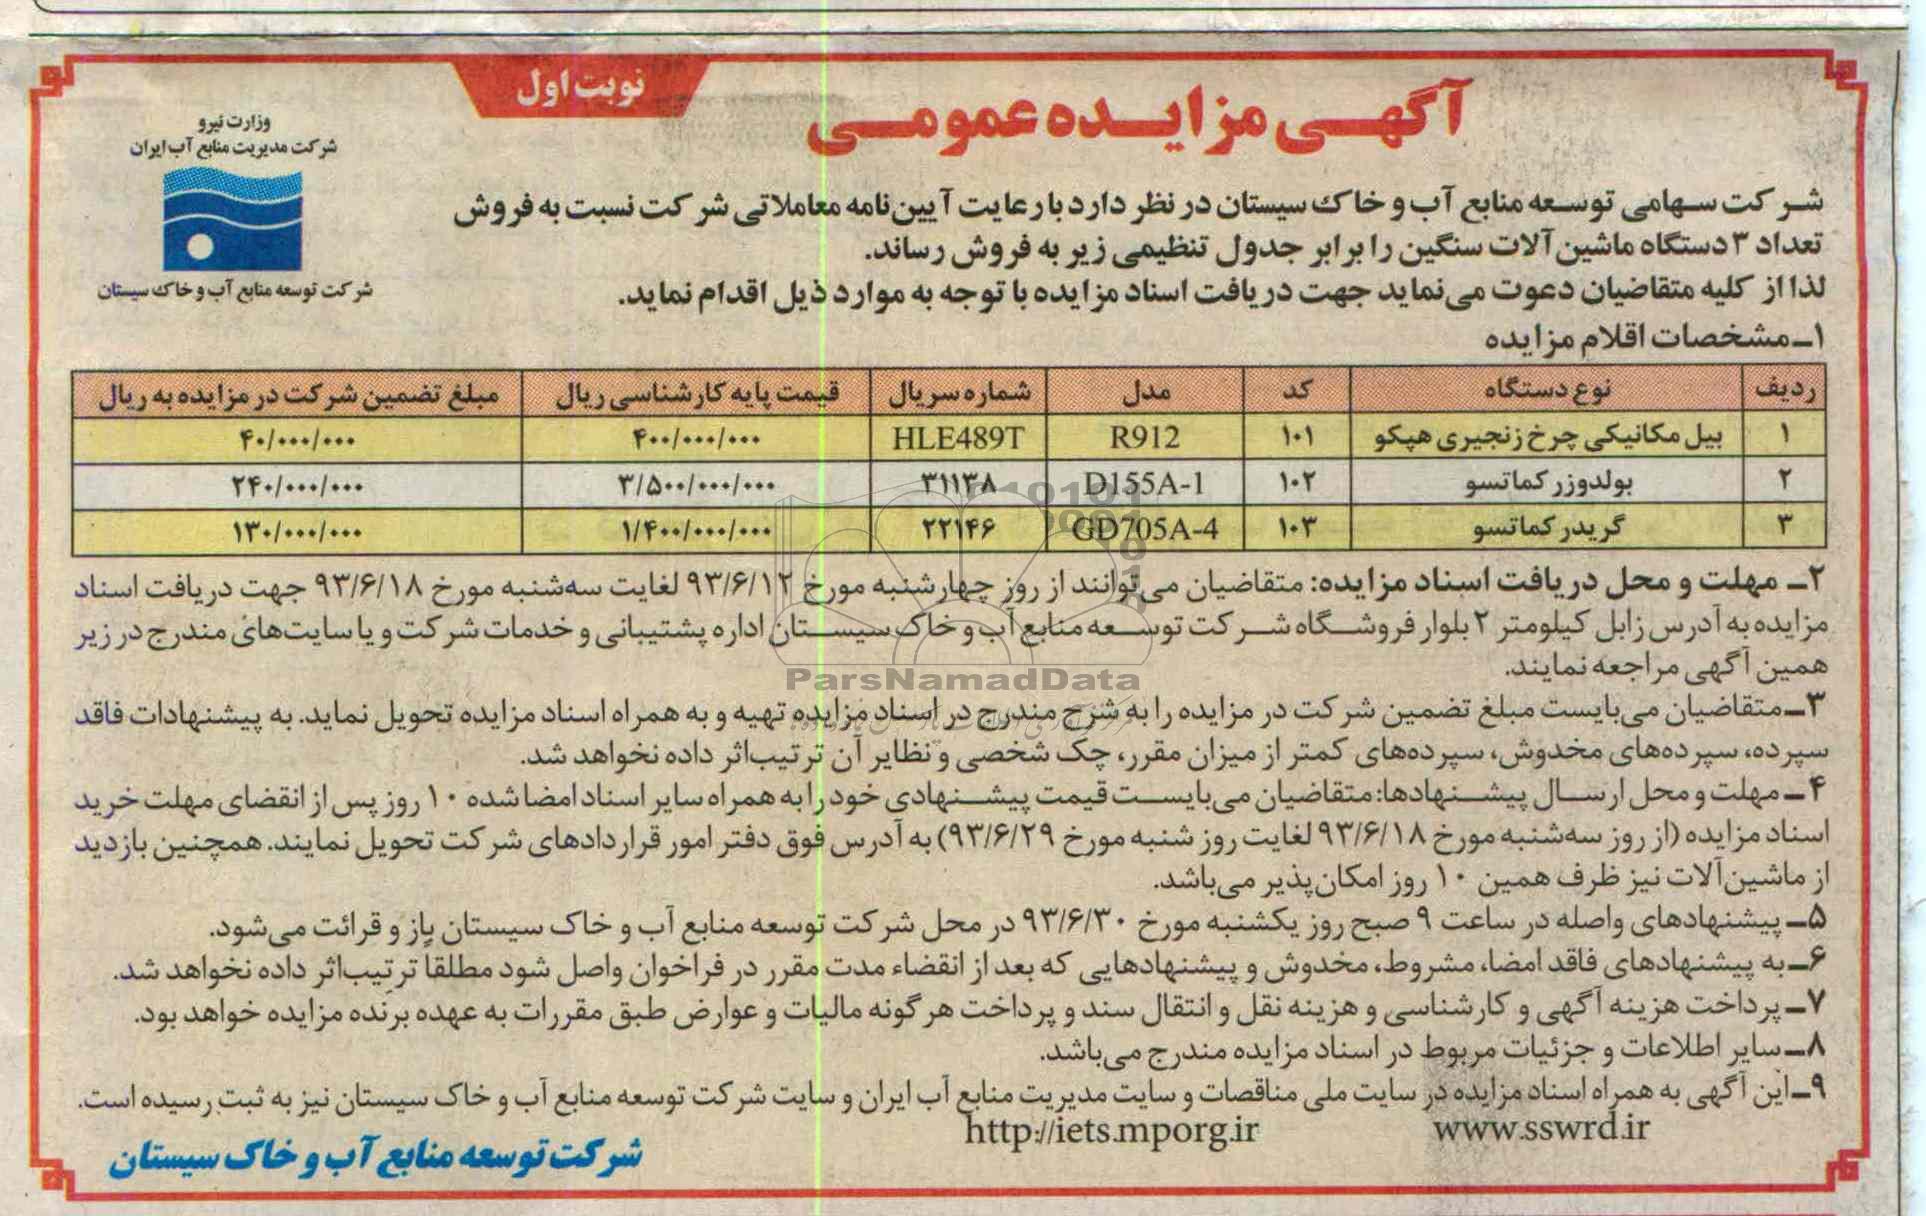 نوبت اول
آگهی مزایده عمومی
وزارت نیرو
شرکت مدیریت منابع آب ایران
شرکت توسعه منابع آب و خاک سیستان
شرکت سهامی توسعه منابع آب و خاک سیستان در نظر دارد با رعایت آیین‌نامه معاملاتی شرکت نسبت به فروش
تعداد ۳ دستگاه ماشین‌آلات سنگین را برابر جدول تنظیمی زیر به فروش رساند.
لذا از کلیه متقاضیان دعوت می‌نماید جهت دریافت اسناد مزایده با توجه به موارد ذیل اقدام نماید.
۱ـ مشخصات اقلام مزایده
ردیف نوع دستگاه کد مدل شماره سریال قیمت پایه کارشناسی ریال مبلغ تضمین شرکت در مزایده به ریال
۱ بیل مکانیکی چرخ زنجیری هپکو ۱۰۱ R912 HLE489T ۴۰۰/۰۰۰/۰۰۰ ۴۰/۰۰۰/۰۰۰
۲ بولدوزر کماتسو ۱۰۲ D155A-1 ۳۱۱۳۸ ۳/۵۰۰/۰۰۰/۰۰۰ ۲۴۰/۰۰۰/۰۰۰
۳ گریدر کماتسو ۱۰۳ GD705A-4 ۲۲۱۴۶ ۱/۴۰۰/۰۰۰/۰۰۰ ۱۳۰/۰۰۰/۰۰۰
۲ـ مهلت و محل دریافت اسناد مزایده: متقاضیان می‌توانند از روز چهارشنبه مورخ ۹۳/۶/۱۲ لغایت سه‌شنبه مورخ ۹۳/۶/۱۸ جهت دریافت اسناد
مزایده به آدرس زابل کیلومتر ۲ بلوار فروشگاه شرکت توسعه منابع آب و خاک سیستان اداره پشتیبانی و خدمات شرکت و یا سایت‌های مندرج در زیر
همین آگهی مراجعه نمایند.
ParsNamadData
۳ـ متقاضیان می‌بایست مبلغ تضمین شرکت در مزایده را به شرح مندرج در اسناد مزایده تهیه و به همراه اسناد مزایده تحویل نماید. به پیشنهادات فاقد
سپرده، سپرده‌های مخدوش، سپرده‌های کمتر از میزان مقرر، چک شخصی و نظایر آن ترتیب‌اثر داده نخواهد شد.
۴ـ مهلت و محل ارسال پیشنهادها: متقاضیان می‌بایست قیمت پیشنهادی خود را به همراه سایر اسناد امضا شده ۱۰ روز پس از انقضای مهلت خرید
اسناد مزایده (از روز سه‌شنبه مورخ ۹۳/۶/۱۸ لغایت روز شنبه مورخ ۹۳/۶/۲۹) به آدرس فوق دفتر امور قراردادهای شرکت تحویل نمایند. همچنین بازدید
از ماشین‌آلات نیز ظرف همین ۱۰ روز امکان‌پذیر می‌باشد.
۵ـ پیشنهادهای واصله در ساعت ۹ صبح روز یکشنبه مورخ ۹۳/۶/۳۰ در محل شرکت توسعه منابع آب و خاک سیستان باز و قرائت می‌شود.
۶ـ به پیشنهادهای فاقد امضا، مشروط، مخدوش و پیشنهادهایی که بعد از انقضاء مدت مقرر در فراخوان واصل شود مطلقا ترتیب‌اثر داده نخواهد شد.
۷ـ پرداخت هزینه آگهی و کارشناسی و هزینه نقل و انتقال سند و پرداخت هر گونه مالیات و عوارض طبق مقررات به عهده برنده مزایده خواهد بود.
۸ـ سایر اطلاعات و جزئیات مربوط در اسناد مزایده مندرج می‌باشد.
۹ـ این آگهی به همراه اسناد مزایده در سایت ملی مناقصات و سایت مدیریت منابع آب ایران و سایت شرکت توسعه منابع آب و خاک سیستان نیز به ثبت رسیده است.
www.sswrd.ir http://iets.mporg.ir
شرکت توسعه منابع آب و خاک سیستان